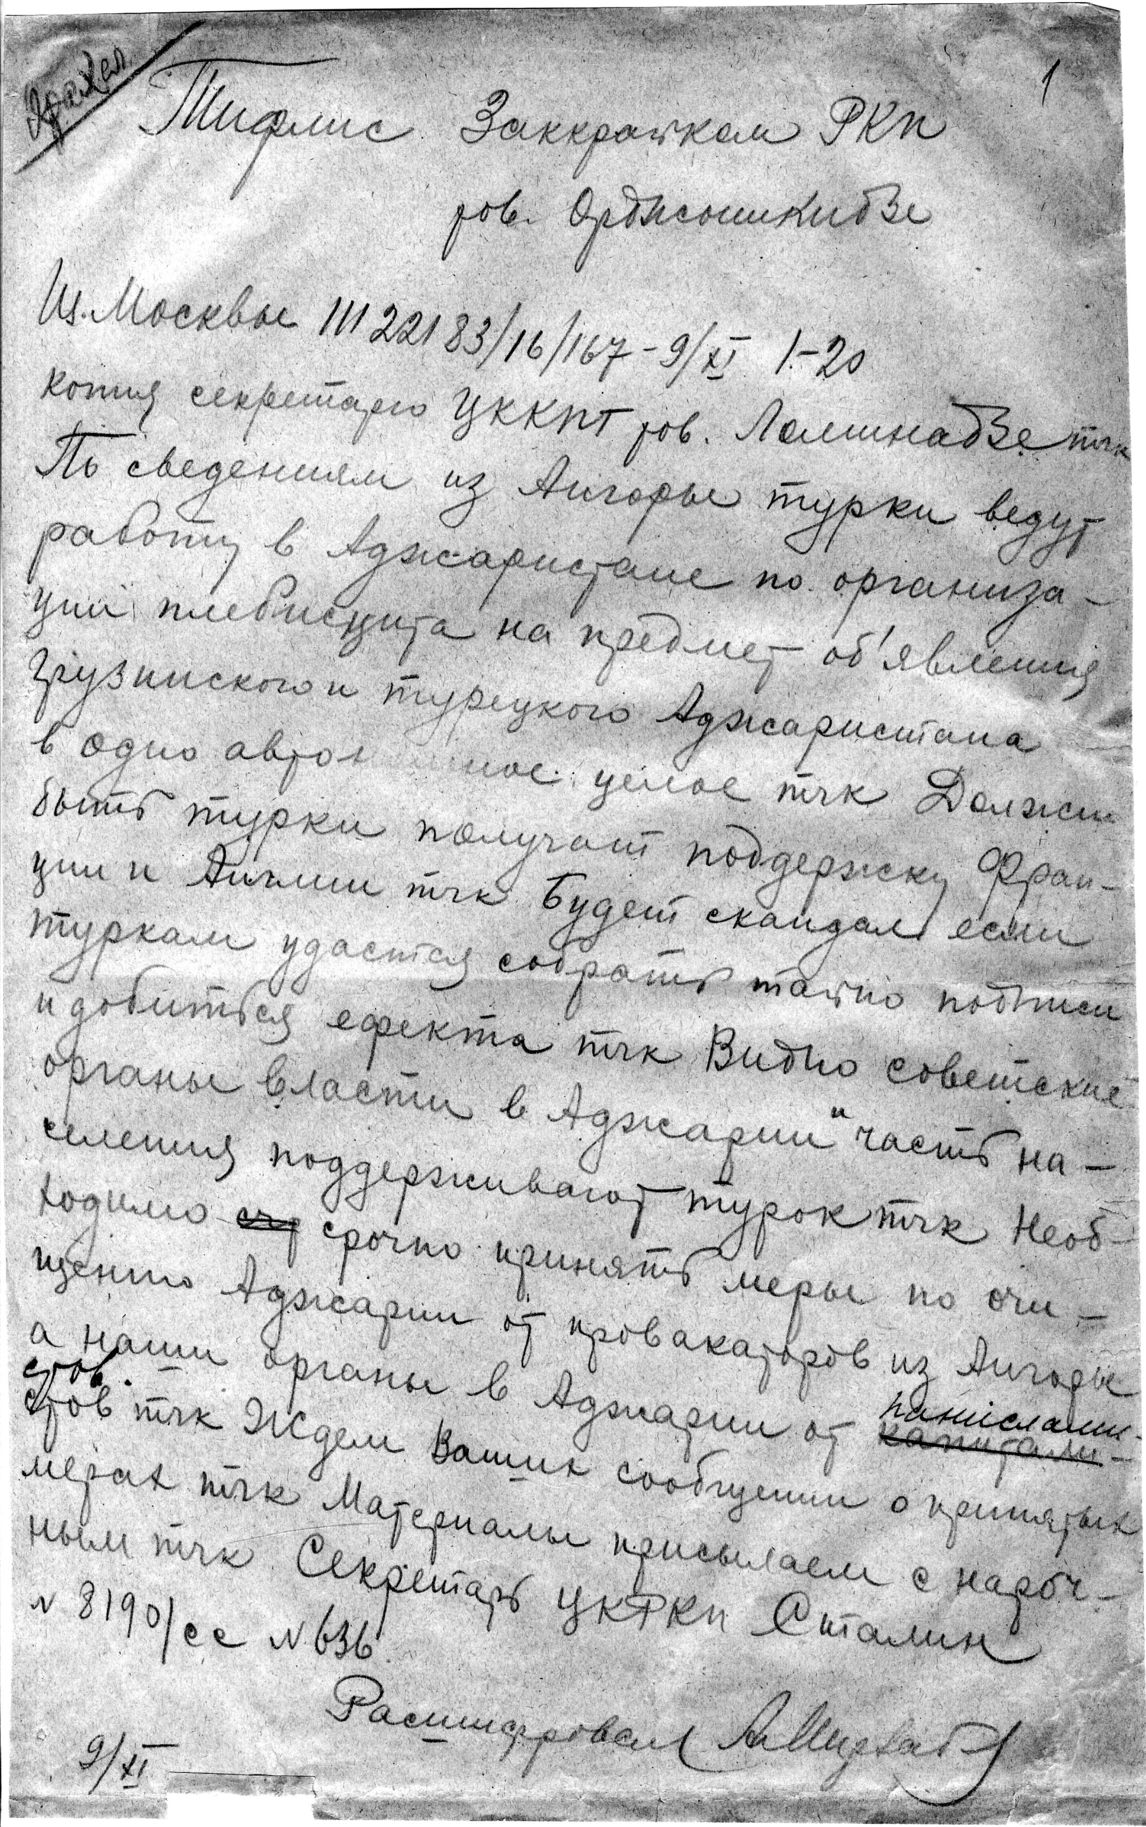 1
Тифлис Заккрайком РКП
тов. Орджоникидзе
Из Москвы Ш 22183/16/167-9/XI 1-20
копия секретарю ЦККПГ тов. Ломинадзе тчк
По сведениям из Ангоры турки ведут
работу в Аджаристане по организа-
ции плебисцита на предмет об'явления
грузинского и турецкого Аджаристана
в одно автономное целое тчк Должно
быть турки получат поддержку Фран-
ции и Англии тчк Будет скандал если
туркам удастся собрать тайно подписи
и добиться ефекта тчк Видно советские
органы власти в Аджарии и часть на-
селения поддерживают турок тчк Необ-
ходимо срочно принять меры по очи-
щению Аджарии от провакаторов из Ангоры
а наши органы в Аджарии от панислами-
капитали-
стов.
стов тчк Ждем Ваших сообщении о принятых
мерах тчк Материалы присылаем с нароч-
ным тчк Секретарь ЦКРКП Сталин
N 8190/сс N 636.
Расшифровал
9/XI